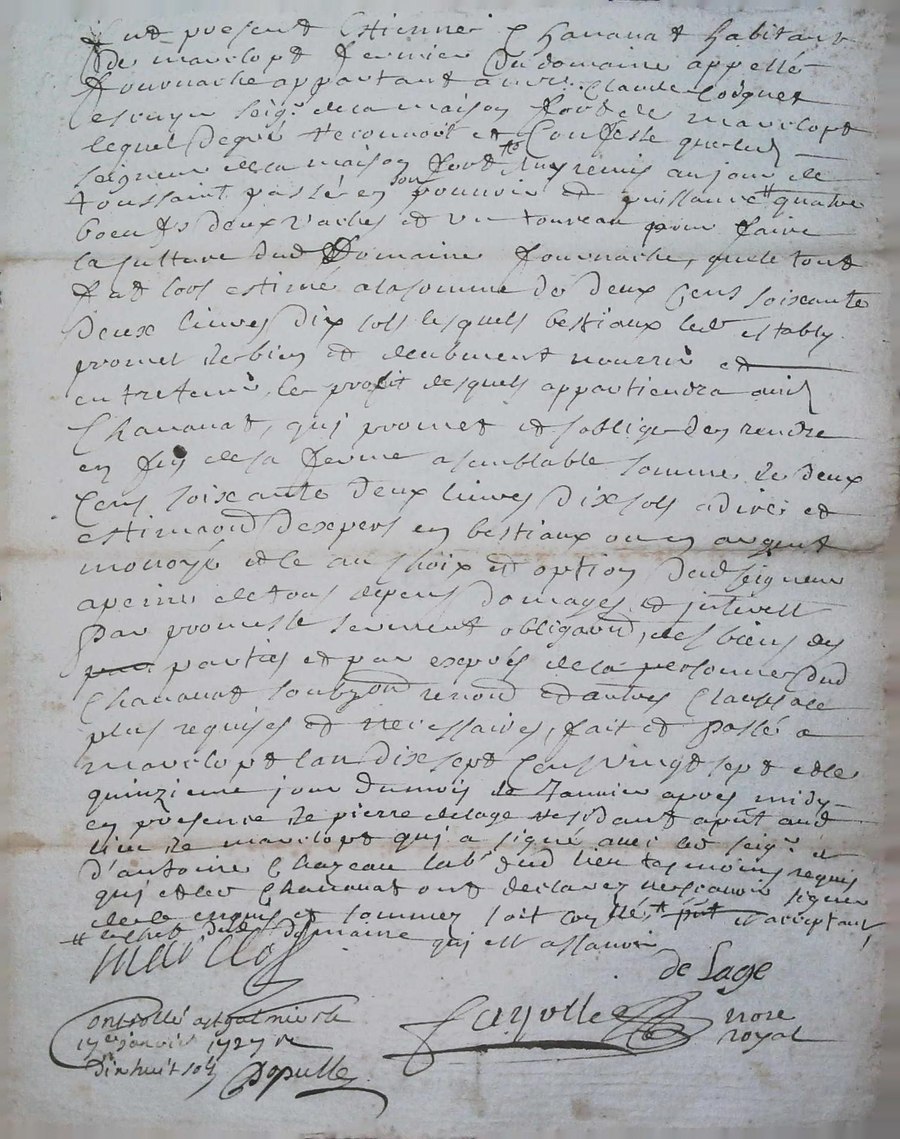 fut present Estienne Chananat habitant
de marclopt fermier du domaine appellé
fournache appartant a mre Claude Coignet
escuyer seigr de la maison fort de marclopt
lequel de gré reconnoit et confesse que led
seigneur de la maison fort luy remis au jour de
toussaint passé en son pouvoir et puissance # quatre
boeufs deux vaches et un toureau pour faire
la culture dud domaine fournache, que le tout
fut lors estimé a la somme de deux cens soixante
deux livres dix sols lesquels bestiaux led estably
promet de bien et deubment nourrir et
entretenir, le profit desquels appartiendra aud
Chananat, qui promet et soblige den rendre
en fin de sa ferme a semblable somme de deux
cens soixante deux livres dix sols a dire et
estimaon dexpers en bestiaux ou en argent
monoyé et le au choix et option dud seigneur
a peine de tous depens domages et interest
par promesse serment obligaon, des biens des
parties et par exprés de la personne dud
Chananat renond et autres clauses
plus requises et necessaires, fait et passé a
marclopt lan dix sept cens vingt sept et le
quinzieme jour du mois de Janvier apres midy
en presence de pierre delage residant aud
lieu de marclopt qui a signé avec led seigr et
d'antoine Chazeau labr dud lieu tesmoins requis
qui et led Chananat ont declarez ne scavoir signer
de ce enquis et sommez soit et acceptant
# dud domaine qui est assavoir
marclop
de Lage
Controllé a st galmier le
17e janvier 1727 r
dix huit sols
fayolle
nore
royal